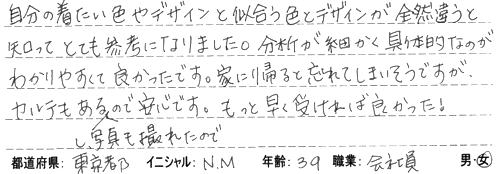 自分の着たい色やデザインと似合う色とデザインが全然違うと
知ってとても参考になりました。分析が細かく具体的なのが
わかりやすくて良かったです。家に帰ると忘れてしまいそうですが、
カルテもあるので安心です。もっと早く受ければ良かった!
し、写真も撮れたので
都道府県: 東京都 イニシャル: N.M 年齢: 39 職業: 会社員 男・女